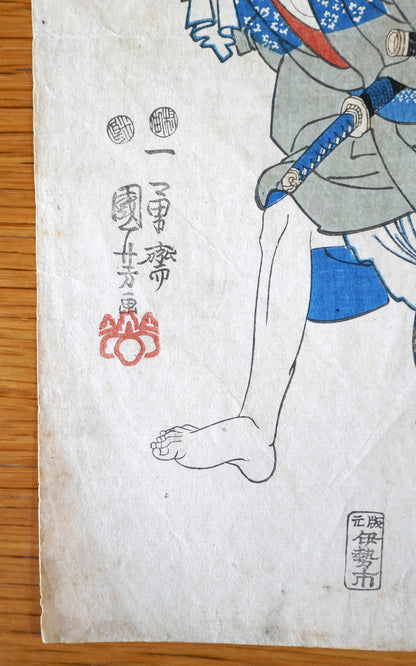 一勇齋
國芳画
版元
伊勢市